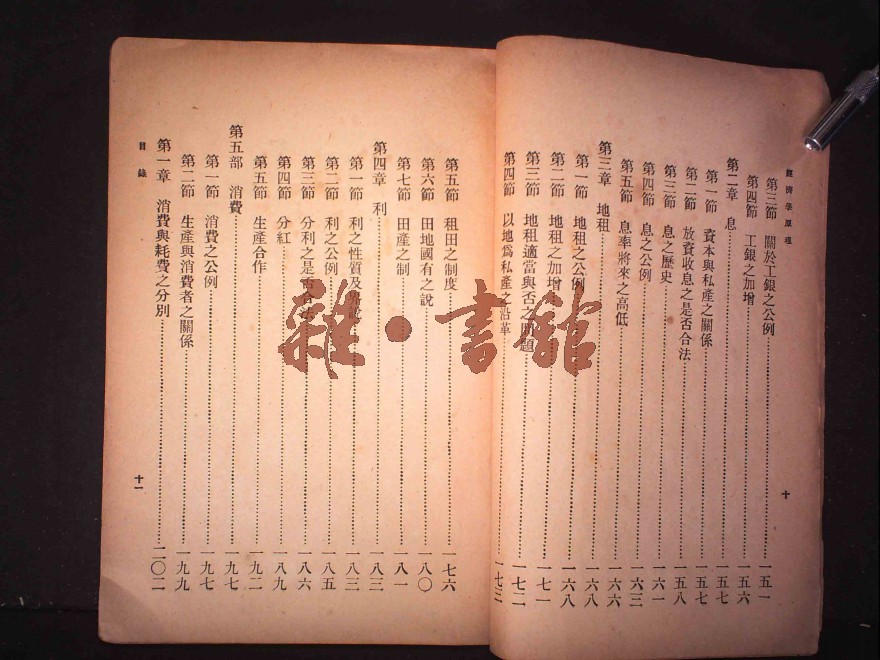 經濟學原理
第三節 關於工銀之公例 一五一
第四節 工銀之加增 一五六
第二章 息 一五七
第一節 資本與私產之關係 一五七
第二節 放資收息之是否合法 一五八
第三節 息之歷史 一六一
第四節 息之公例 一六三
第五節 息率將來之高低 一六六
第三章 地租 一六六
第一節 地租之公例 一六八
第二節 地租之加增 一六八
第三節 地租適當與否之問題 一七一
第四節 以地爲私產之沿革 一七二
一七三
十
第五節 租田之制度 一七六
第六節 田地國有之說 一八〇
第七節 田產之制 一八一
第四章 利 一八三
第一節 利之性質及 一八三
第二節 利之公例 一八五
第三節 分利之是否合法 一八六
第四節 分紅 一八九
第五節 生產合作 一九二
第五部 消費 一九七
第一節 消費之公例 一九七
第二節 生產與消費者之關係 一九九
第一章 消費與耗費之分別 二〇二
目錄
十一
雜·書館